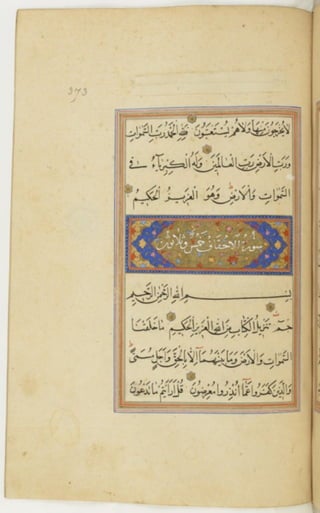 ٣٧٣
لا يخرجون منها ولا هم يستعتبون فلله الحمد رب السموات
ورب الارض رب العالمين وله الكبرياء في
السموات والارض وهو العزيز الحكيم
سورة الاحقاف خمس وثلاثون
بسم الله الرحمن الرحيم
حم تنزيل الكتاب من الله العزيز الحكيم ما خلقنا
السموات والارض وما بينهما الا بالحق واجل مسمى
والذين كفروا عما انذروا معرضون قل ارايتم ما تدعون